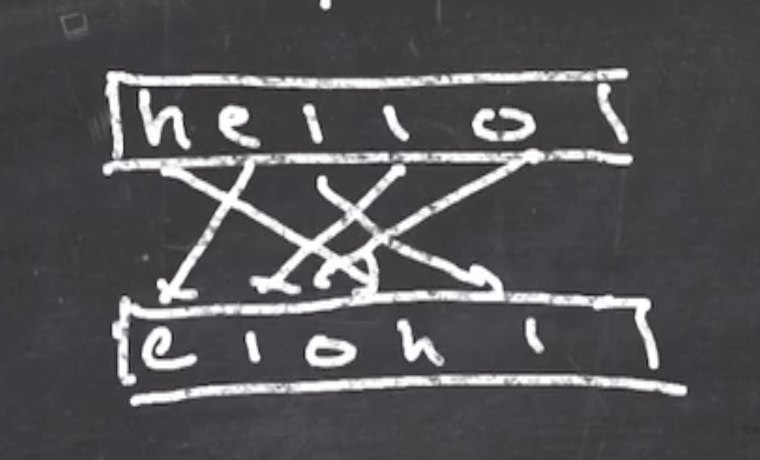 hello
elohl